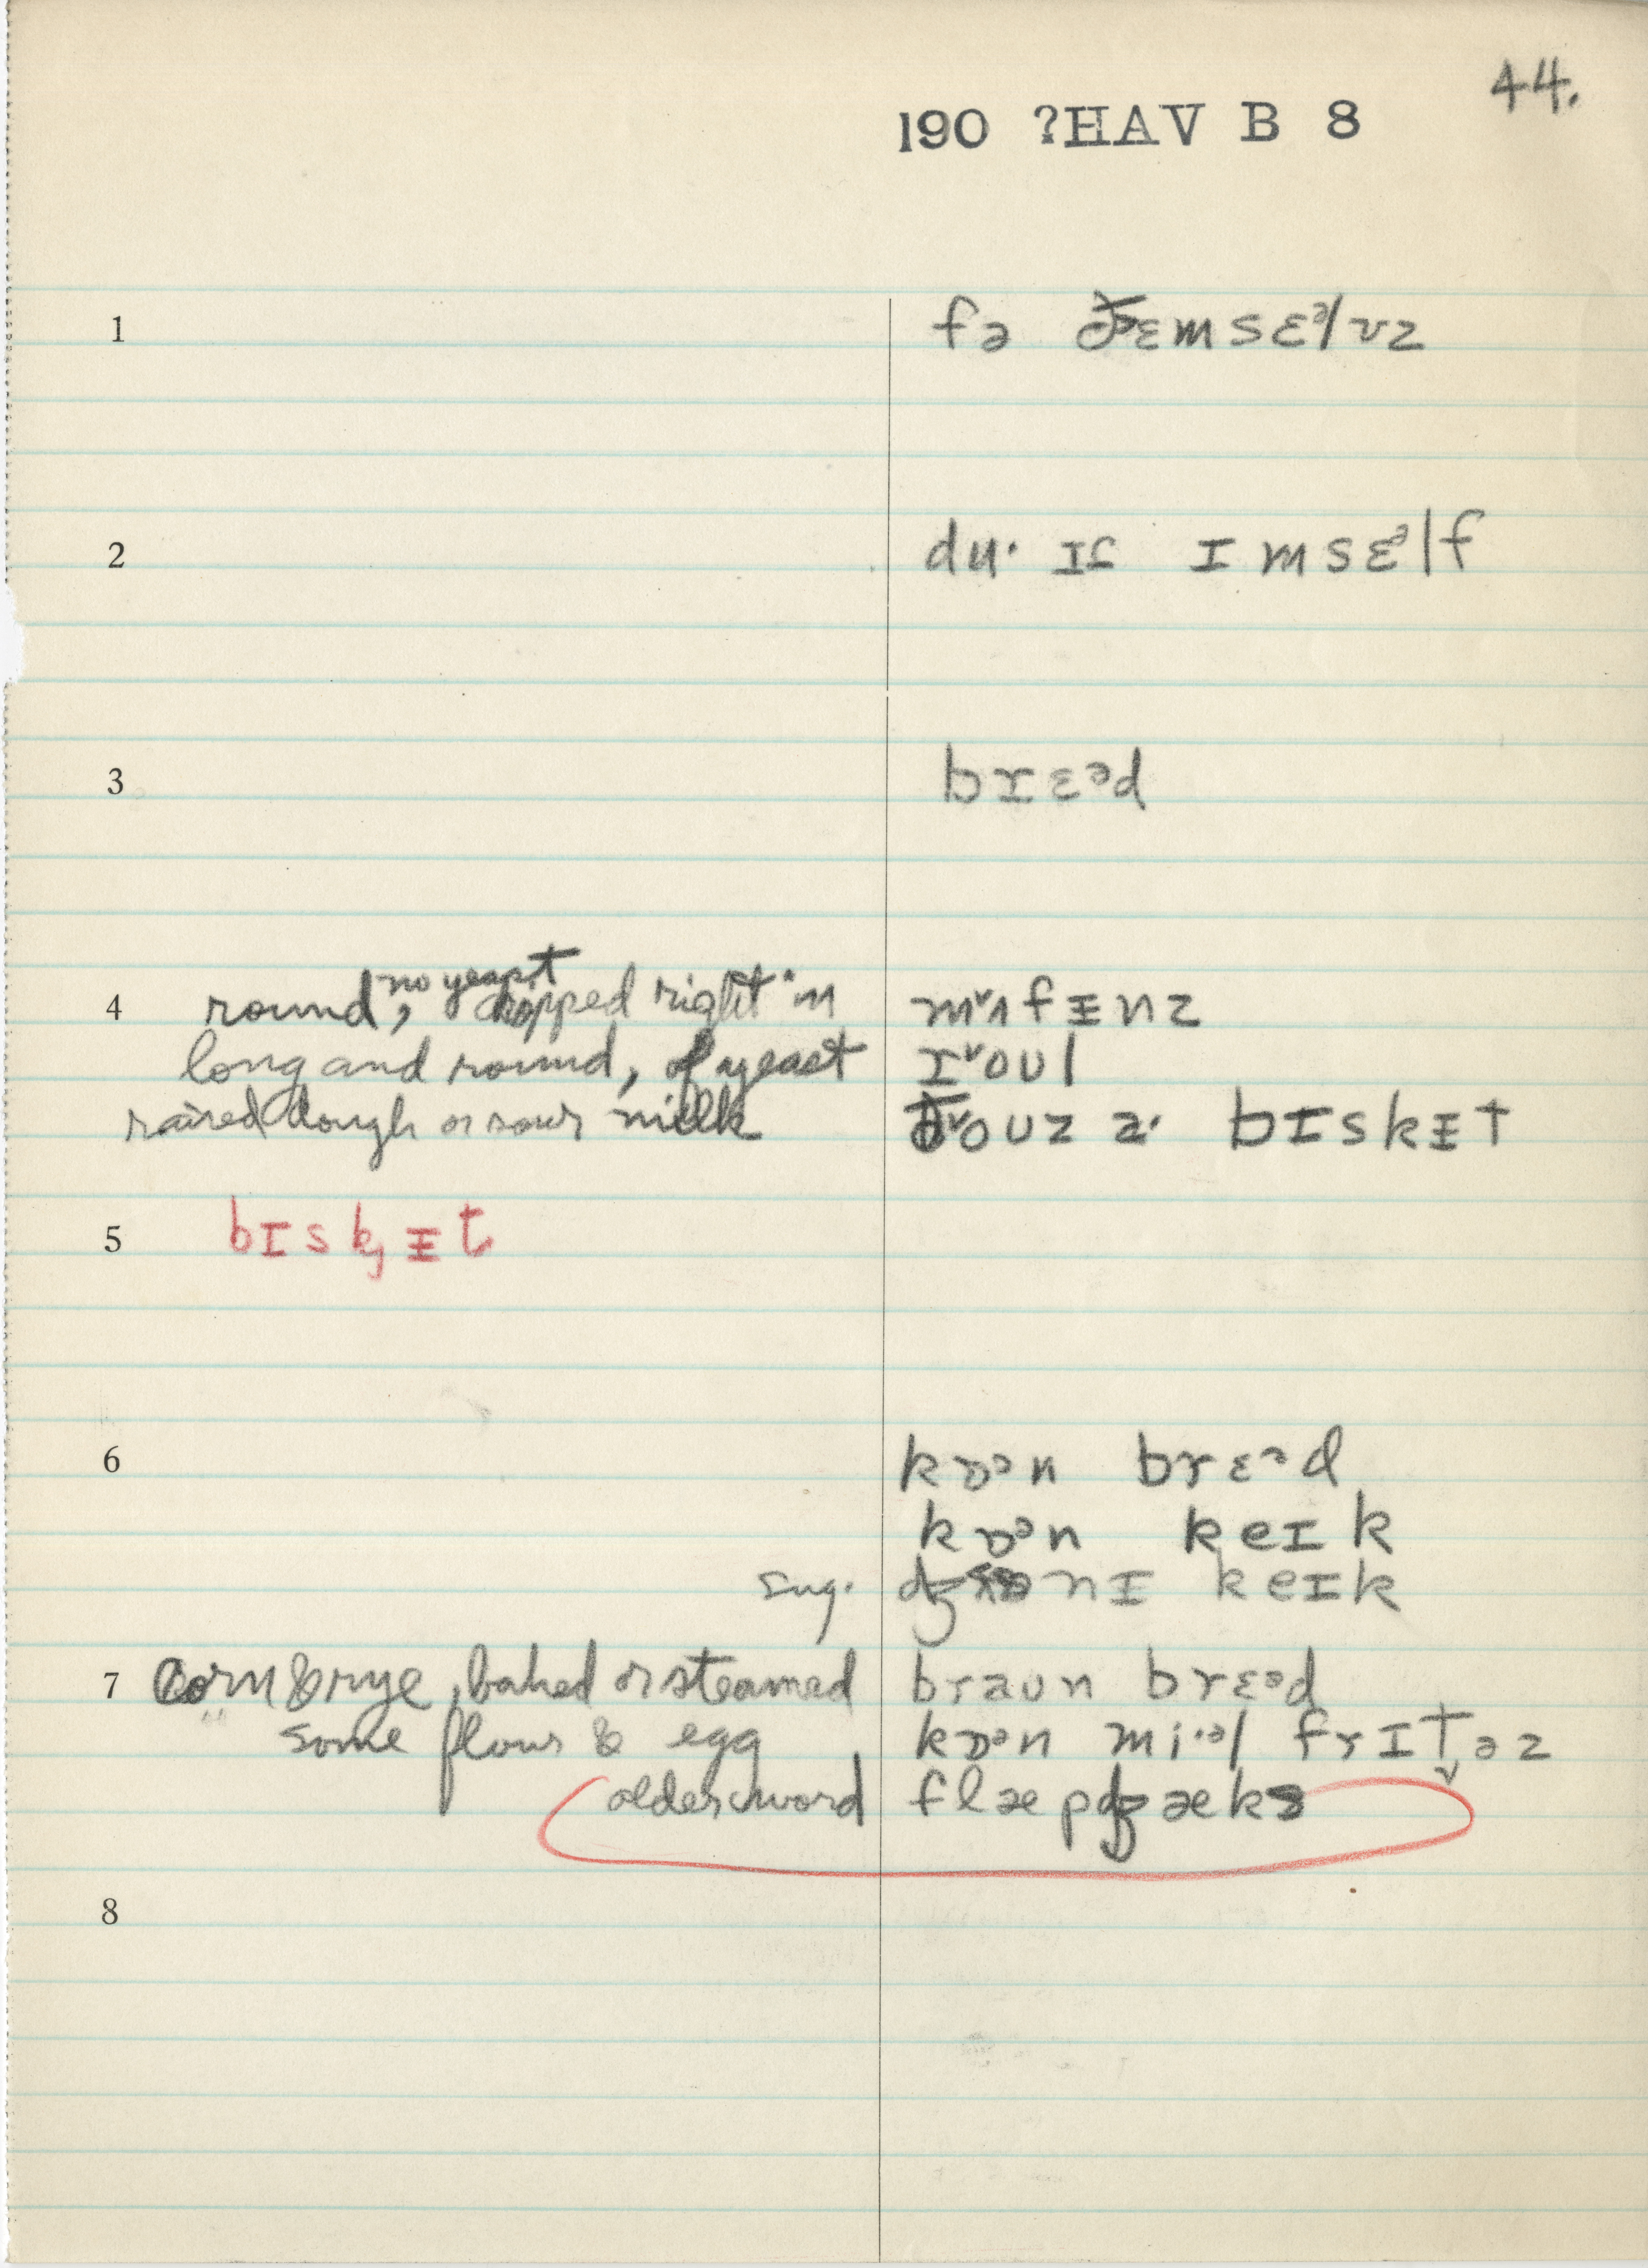 44.
190 ?HAV B 8
1 fə ðɛmsɛᵊlvz
2 du· ɪf ɪmsɛᵊlf
3 brɛᵊd
4 round, no yeast dropped right in mᵛʌfɪnz
long and round, of yeast rᵛoʊl
raised dough or sour milk ðᵛoʊz a· bɪskɪt
5 bɪskɪt
6 kɒᵊn brɛᵊd
kɒᵊn keɪk
sug. nɪ keɪk
7 Corn & rye, baked or steamed braʊn brɛᵊd
some flour & egg kɒᵊn mi·ᵊl frɪt̬əz
older word flæpdʒæks
8